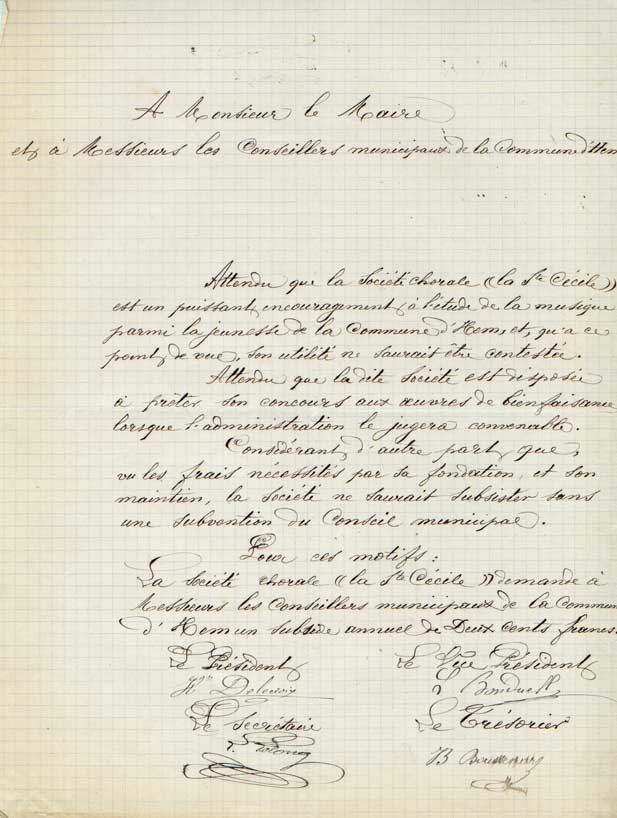 A Monsieur le Maire
et à Messieurs les Conseillers municipaux de la Commune d'Hem
Attendu que la Société chorale "la Ste Cécile"
est un puissant encouragement à l'étude de la musique
parmi la jeunesse de la Commune d'Hem et, qu'a ce
point de vue, son utilité ne saurait être contestée.
Attendu que la dite Société est disposée
à prêter son concours aux œuvres de bienfaisance
lorsque l'administration le jugera convenable.
Considérant, d'autre part que,
vu les frais nécessités par sa fondation et son
maintien, la société ne saurait subsister sans
une subvention du Conseil municipal.
Pour ces motifs:
La Société chorale "la Ste Cécile" demande à
Messieurs les Conseillers municipaux de la Commun
d'Hem un subside annuel de Deux cents francs.
Le Président Le Vice Président
Le Secrétaire Le Trésorier
B